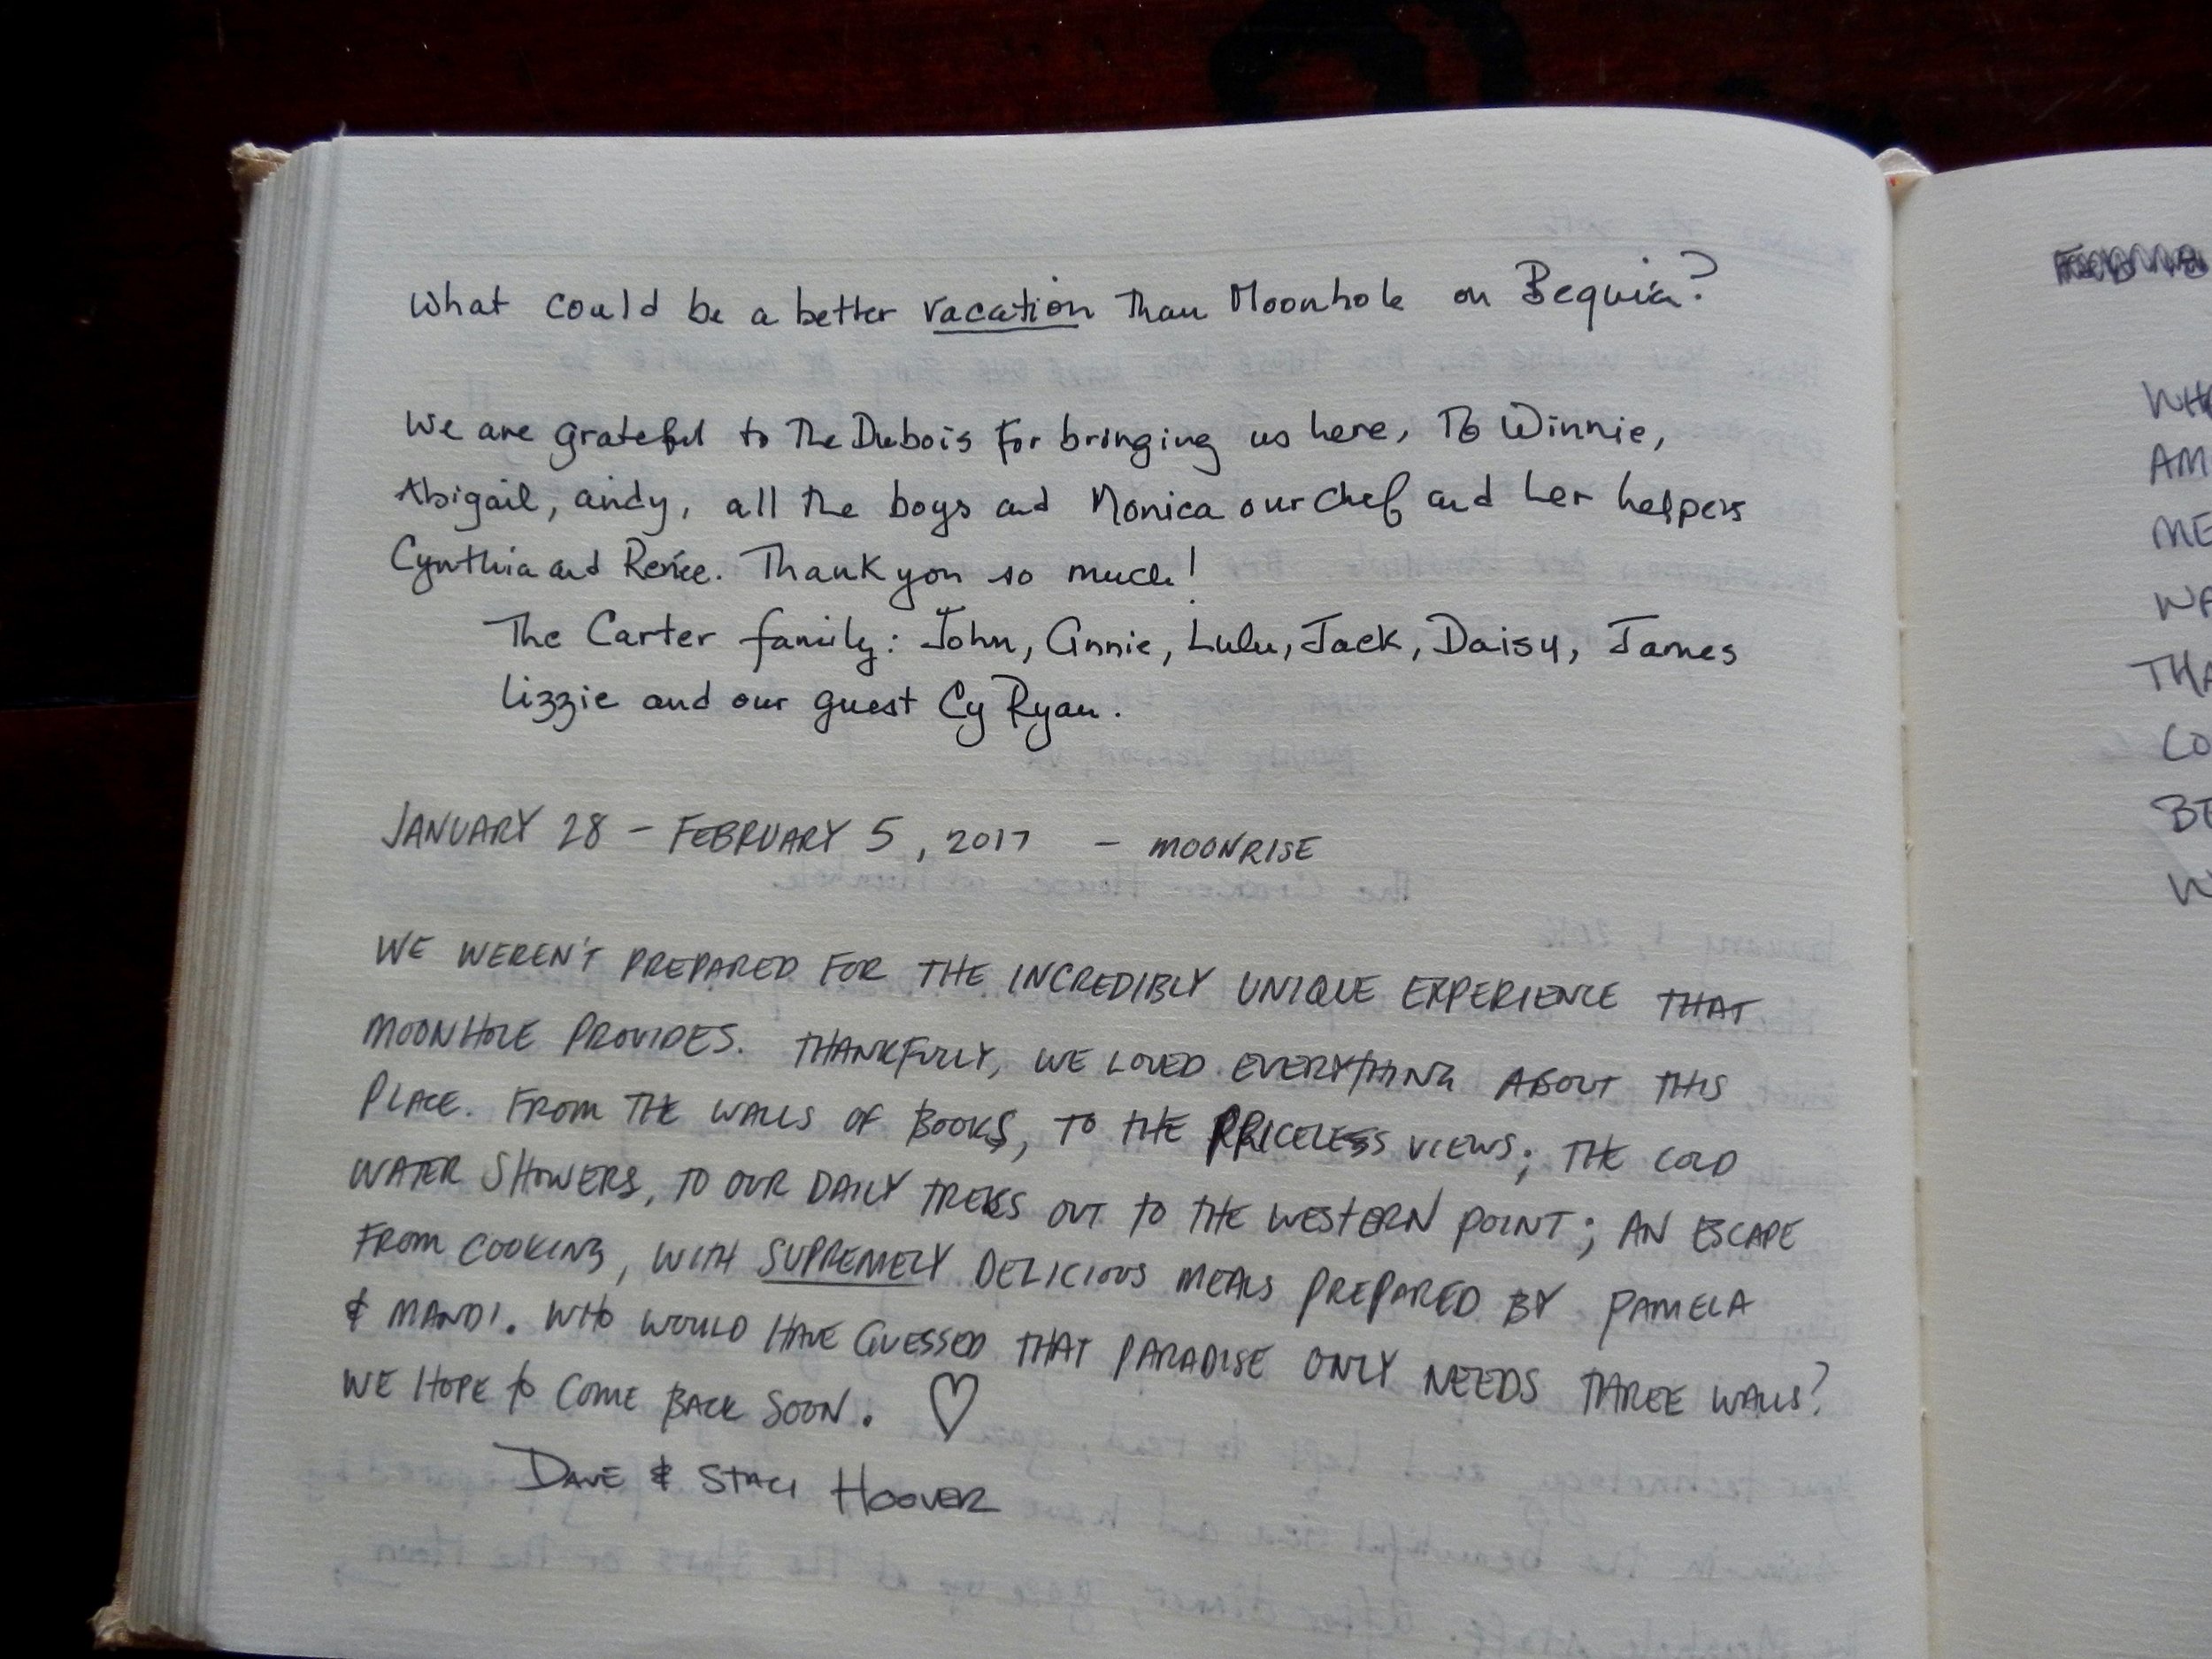 What could be a better vacation Than Moonhole on Bequia?
We are grateful to The Dubois for bringing us here, To Winnie,
Abigail, andy, all the boys and Monica our chef and her helpers
Cynthia and Renée. Thank you so much!
The Carter family: John, Annie, Lulu, Jack, Daisy, James
Lizzie and our guest Cy Ryan.
JANUARY 28 - FEBRUARY 5, 2017 - MOONRISE
WE WEREN'T PREPARED FOR THE INCREDIBLY UNIQUE EXPERIENCE THAT
MOONHOLE PROVIDES. THANKFULLY, WE LOVED EVERYTHING ABOUT THIS
PLACE. FROM THE WALLS OF BOOKS, TO THE PRICELESS VIEWS; THE COLD
WATER SHOWERS, TO OUR DAILY TREKS OUT TO THE WESTERN POINT; AN ESCAPE
FROM COOKING, WITH SUPREMELY DELICIOUS MEALS PREPARED BY PAMELA
& MANDI. WHO WOULD HAVE GUESSED THAT PARADISE ONLY NEEDS THREE WALLS?
WE HOPE TO COME BACK SOON. ♡
DAVE & STACI HOOVER
AM
ME
WA
THA
CO
BE